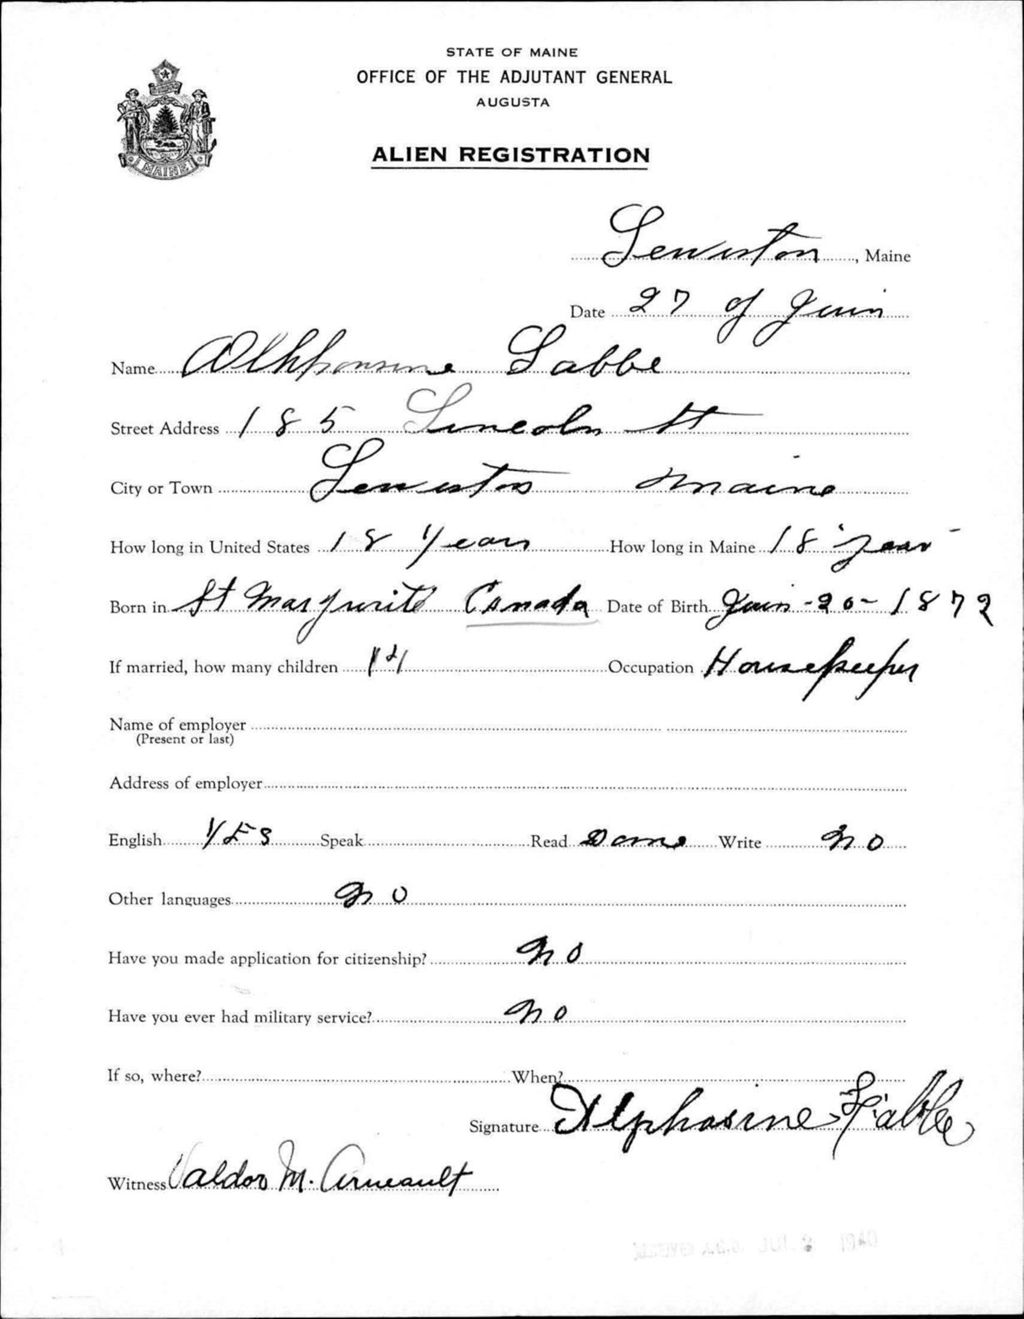 STATE OF MAINE
OFFICE OF THE ADJUTANT GENERAL
AUGUSTA
ALIEN REGISTRATION
MAINE
Lewiston, Maine
Date 27 of Juin
Name Alhponsine Labbe
Street Address 185 Lincoln St
City or Town Lewiston Maine
How long in United States 18 Years How long in Maine 18 year
Born in St Margurite Canada Date of Birth Juin-20-1872
If married, how many children 14 Occupation Housekeeper
Name of employer
(Present or last)
Address of employer
English YES Speak Read Some Write No
Other languages No
Have you made application for citizenship? No
Have you ever had military service? No
If so, where? When?
Signature Alphosine Labbe
Witness Valdor M. Arneault
JUL 2 1940